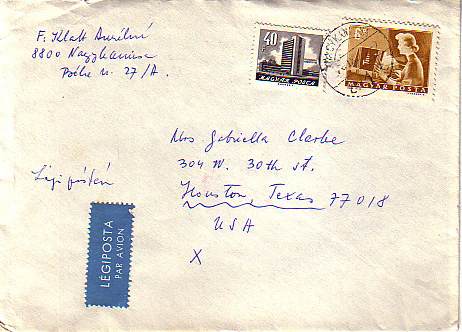 F. Klatt Aurélné
8800 Nagykanizsa
Pétőfi u. 27/A.
40
MAGYAR POSTA
1Ft
MAGYAR POSTA
Mrs Gabriella Clarke
304 W. 30th st.
Houston, Texas 77018
USA
X
Légi póstán
LÉGIPOSTA
PAR AVION